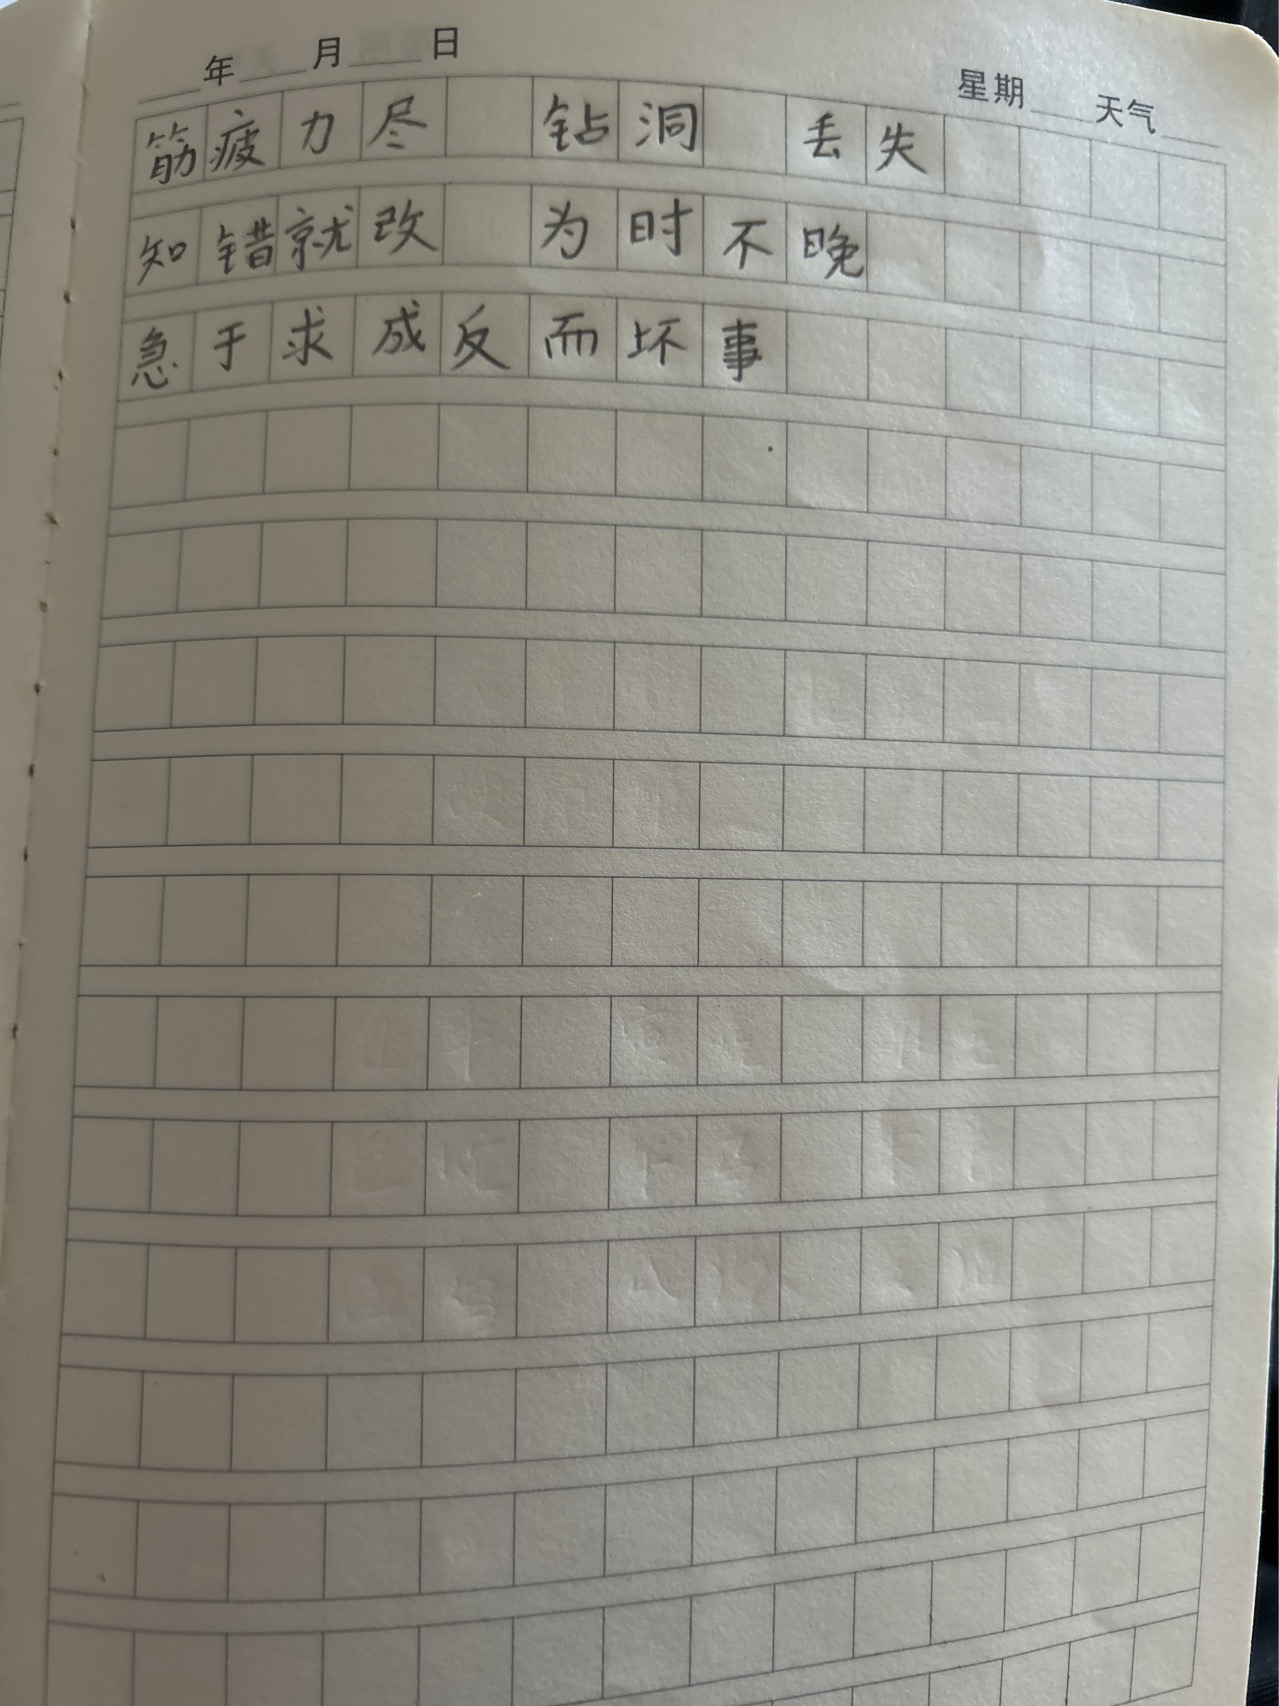 年 月 日 星期 天气
筋疲力尽 钻洞 丢失
知错就改 为时不晚
急于求成反而坏事